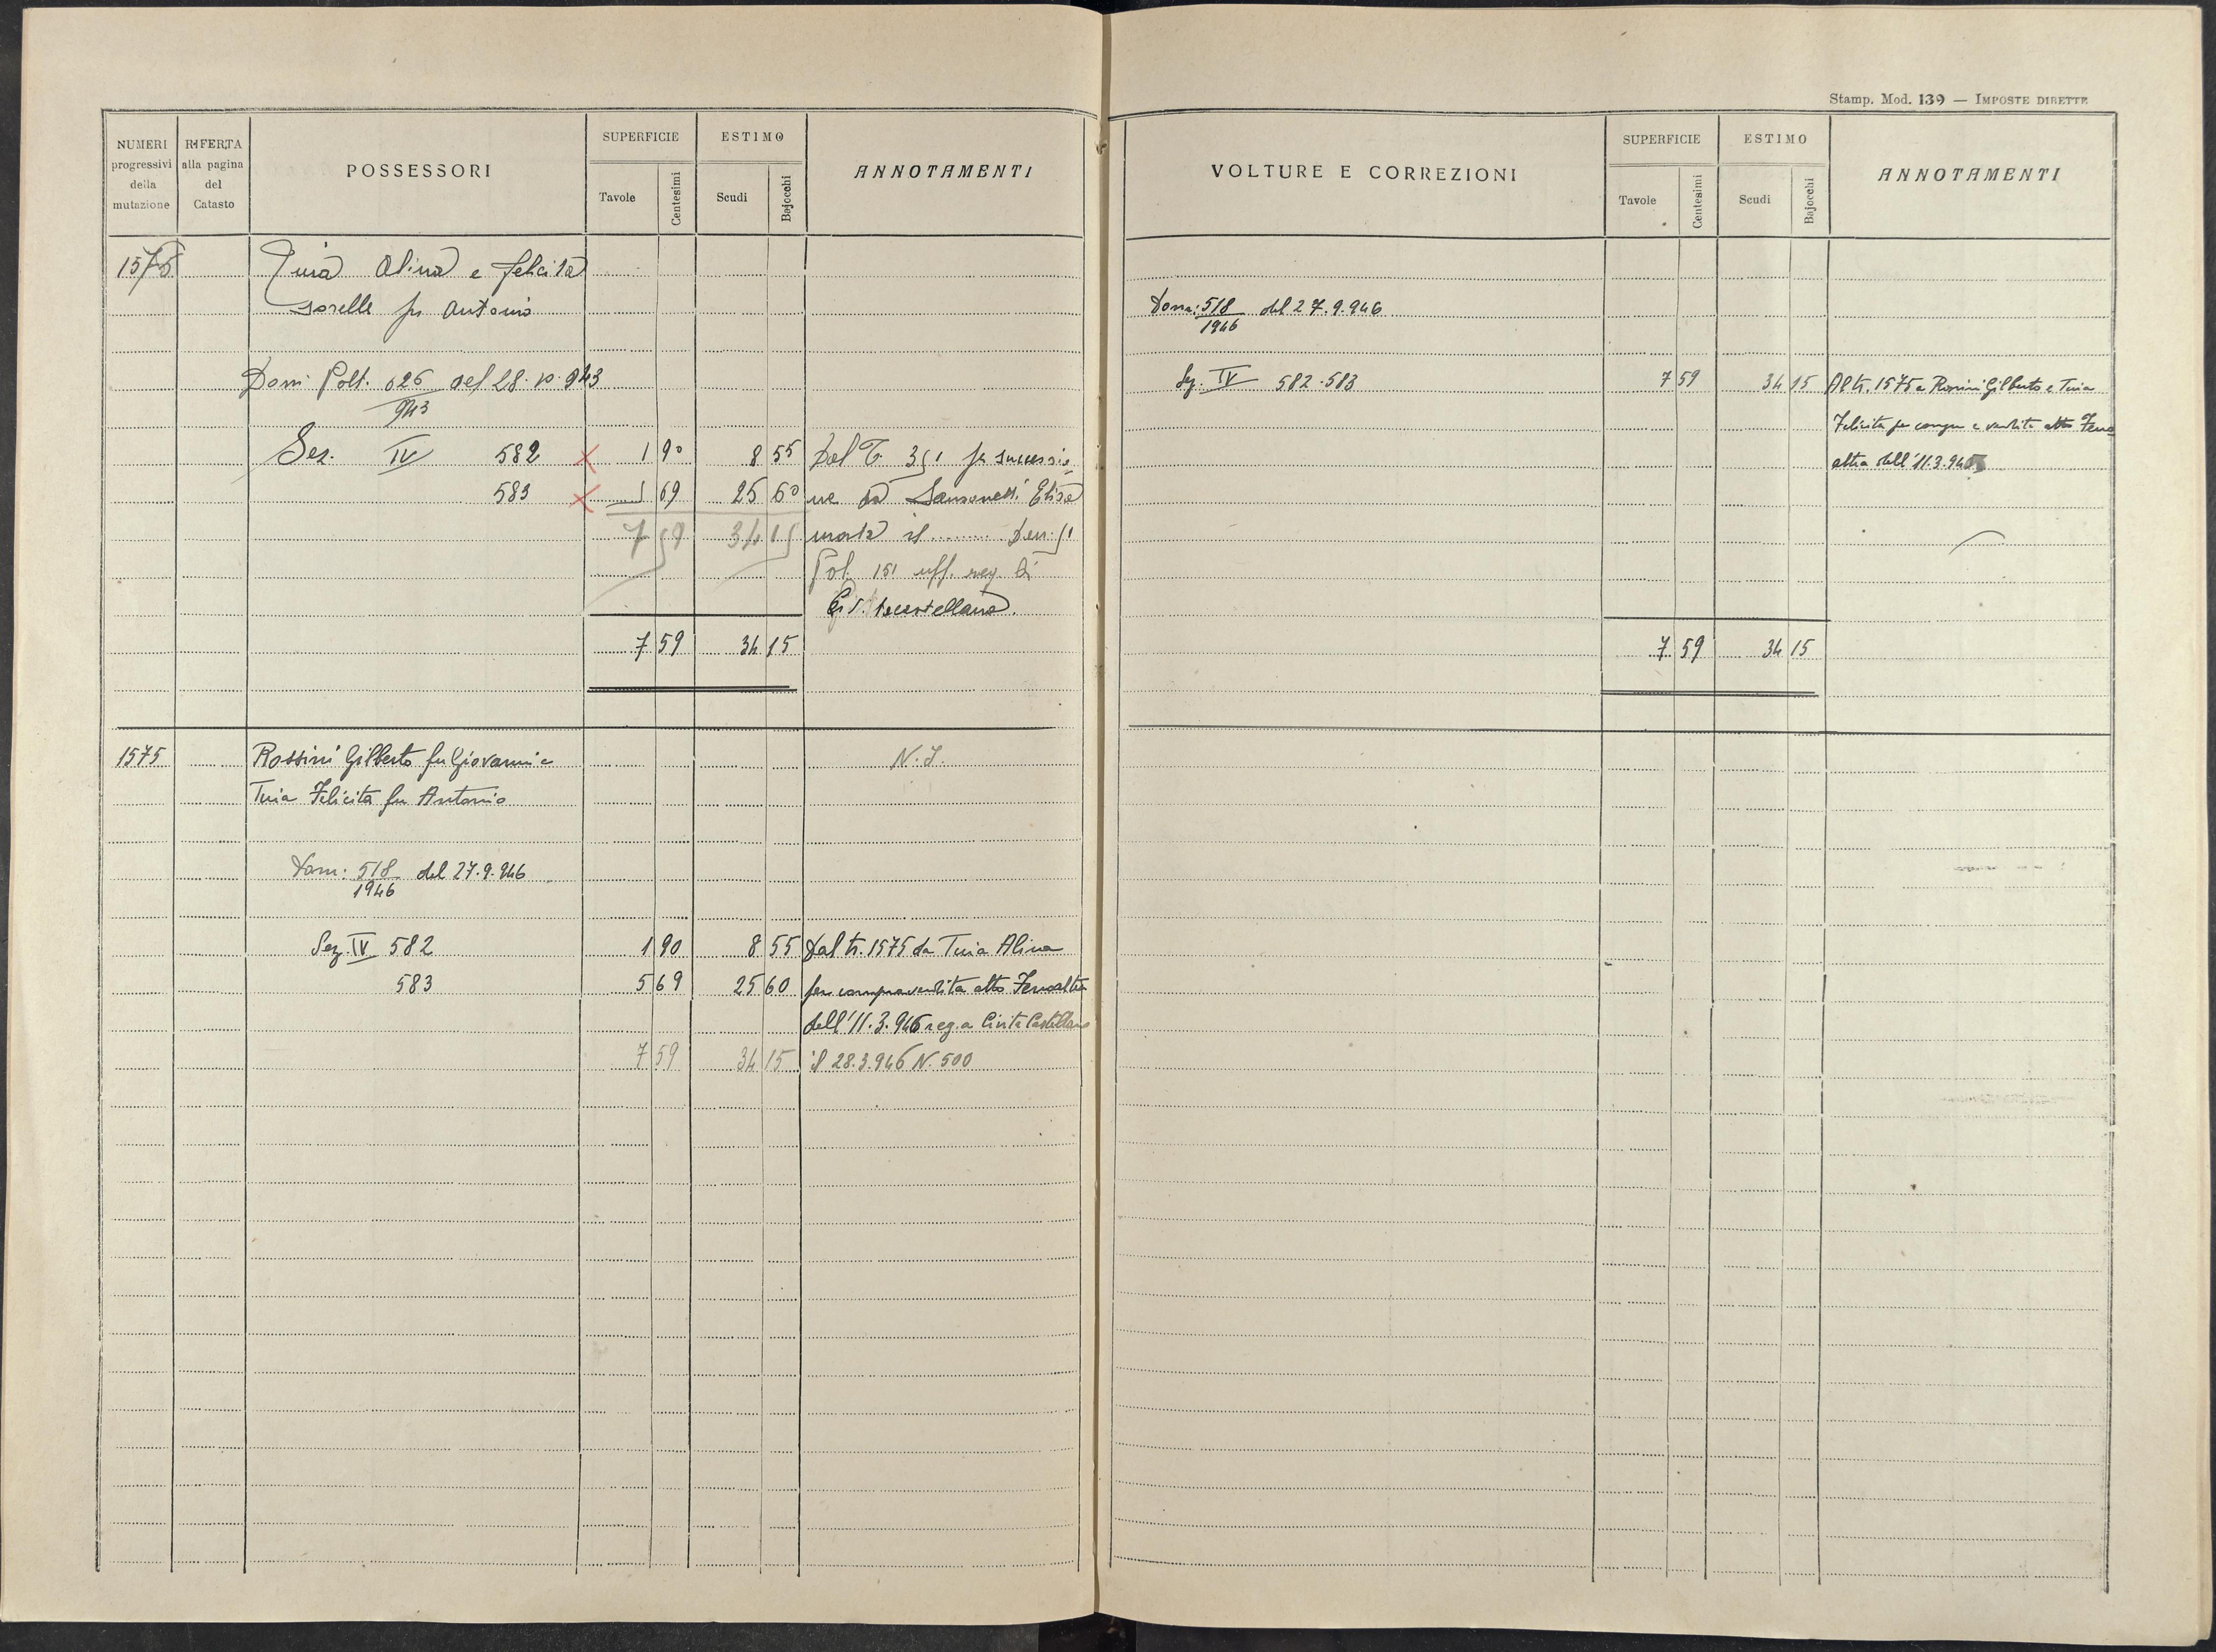 Stamp. Mod. 139 — IMPOSTE DIRETTE
NUMERI progressivi della mutazione
RIFERTA alla pagina del Catasto
POSSESSORI
SUPERFICIE
Tavole Centesimi
ESTIMO
Scudi Bajocchi
ANNOTAMENTI
1575 Tuia Alina e Felicita
sorelle fu Antonio
Dom. Volt. 626 del 28.10.943
943
Sez. IV 582 X 1 90 8 55 Dal T. 351 per successio
583 X 5 69 25 60 ne da Elisa
7 59 34 15 morta il ........ Den. 51
Vol. 151 uff. reg. di
Civitacastellana.
7 59 34 15
1575 Rossini Gilberto fu Giovanni e N.I.
Tuia Felicita fu Antonio
Dom: 518 del 27.9.946
1946
Sez. IV 582 1 90 8 55 Dal tr. 1575 da Tuia Alina
583 5 69 25 60 per compravendita atto Ferroaltra
dell'11.3.946 reg. a Civita Castellana
7 59 34 15 il 28.3.946 N. 500
VOLTURE E CORREZIONI
SUPERFICIE
Tavole Centesimi
ESTIMO
Scudi Bajocchi
ANNOTAMENTI
Dom: 518 del 27.9.946
1946
Sez. IV 582-583 7 59 34 15 Al tr. 1575 a Rossini Gilberto e Tuia
Felicita per compra e vendita atto Ferro
altra dell'11.3.946
7 59 34 15